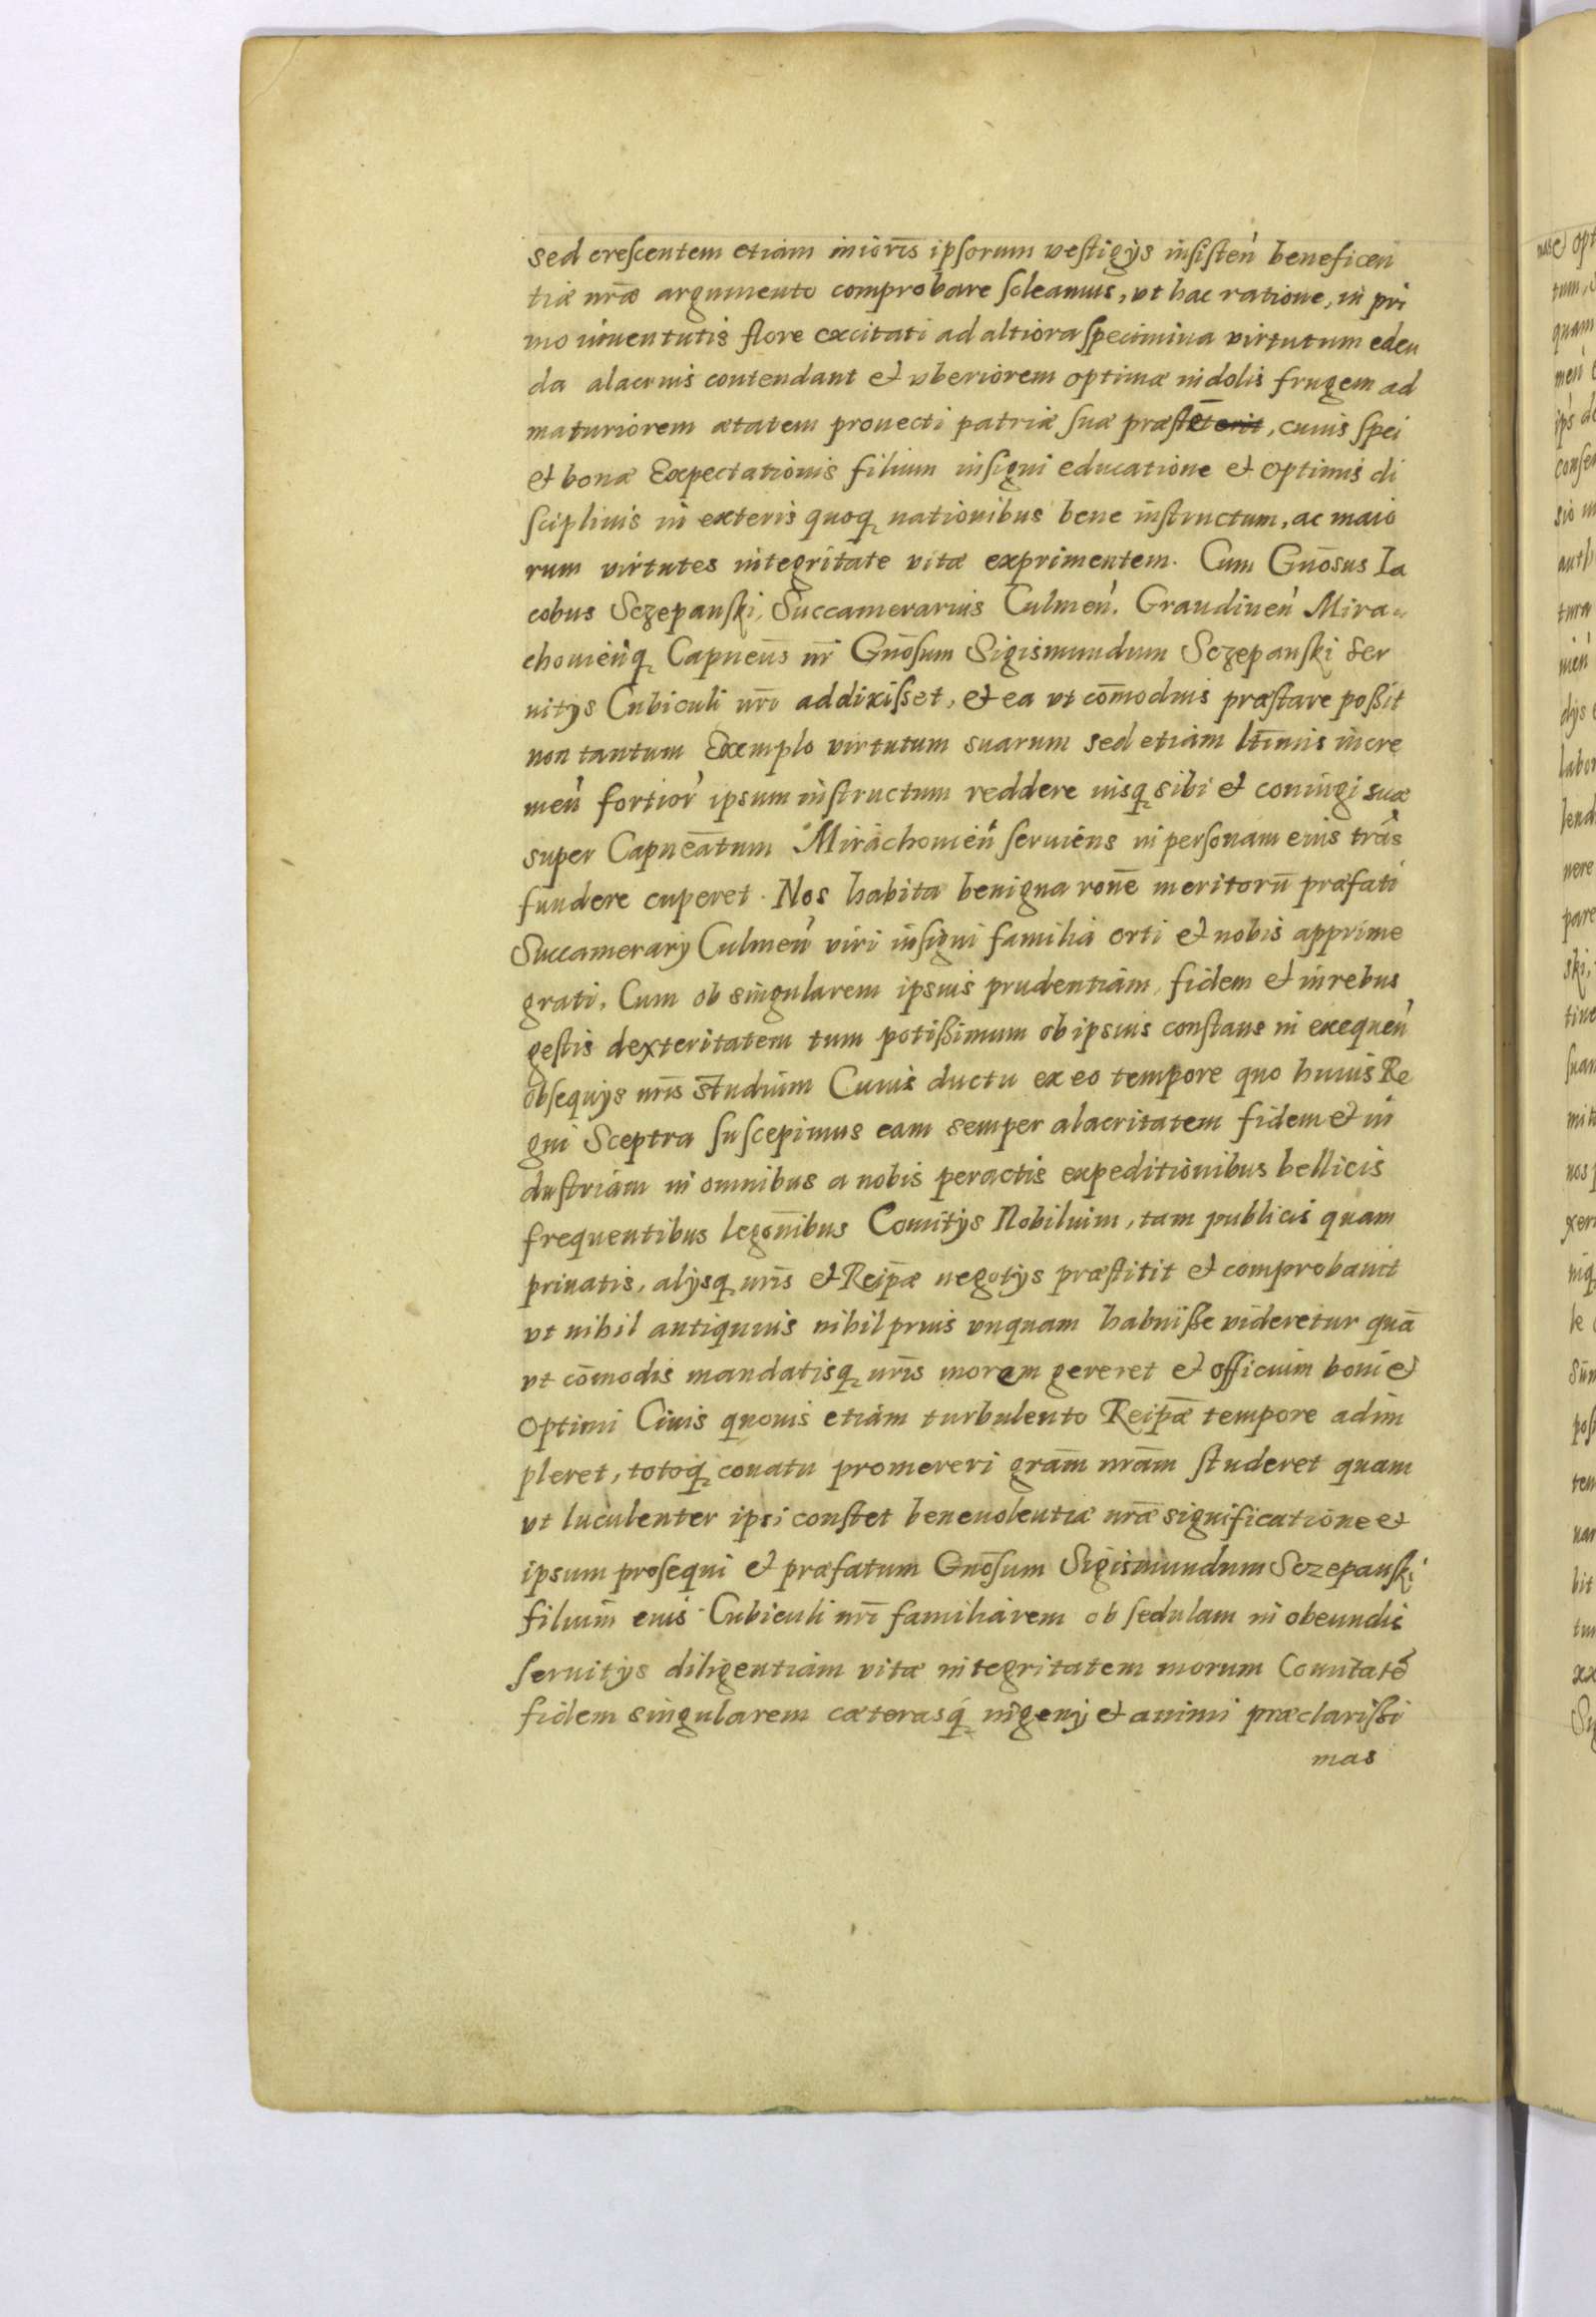 sed crescentem etiam in ioris ipsorum vestigÿs insisteń beneficen
tiæ nr̃æ argumento comprobare soleamus, vt hac ratione, in pri
mo iuuentutis flore excitati ad altiora specimina virtutum eden
da alacrius contendant et vberiorem optimæ indolis frugem ad
maturiorem ætatem prouecti patriæ suæ præstēt, cuius spei
et bonæ Expectationis filium insigni educatione et optimis di
sciplinis in exteris quoq nationibus bene instructum, ac maio
rum virtutes integritate vitæ exprimentem. Cum Gnōsus Ia
cobus Sczepanski, Succamerarius Culmeń. Graudineń Mira
chouieńq Capneūs nr̄ Gnōsum Sigismundum Sczepanski ser
uitÿs Cubiculi nr̄i addixisset, et ea vt cōmodius præstare possit
non tantum Exemplo virtutum suarum sed etiam ltīmis incre
meń fortior̀ ipsum instructum reddere iusq sibi et coniugi suæ
super Capneātum Mirachouień seruiens in personam eius trās
fundere cuperet. Nos habita benigna ronē meritorū præfati
Succamerarÿ Culmeń viri insigni familia orti et nobis apprime
grati. Cum ob singularem ipsius prudentiam, fidem et in rebus
gestis dexteritatem tum potissimum ob ipsius constans in exequeń
obsequÿs nr̄is studium Cuius ductu ex eo tempore quo huius Re
gni Sceptra suscepimus eam semper alacritatem fidem et in
dustriam in omnibus a nobis peractis expeditionibus bellicis
frequentibus legon̄ibus Comitÿs Nobilium, tam publicis quam
priuatis, alÿsq nr̄is et Reip̄æ negotÿs præstitit et comprobauit
vt nihil antiquius nihil prius vnquam habuisse videretur quā
vt cōmodis mandatisq nr̄is morem gereret et officium boni et
optimi Ciuis quouis etiam turbulento Reip̄æ tempore adim
pleret, totoq conatu promereri grām nrām studeret quam
vt luculenter ipsi constet beneuolentiæ nr̄æ significatione et
ipsum prosequi et præfatum Gnōsum Sigismundum Sczepanski
filium eius Cubiculi nr̄i familiarem ob sedulam in obeundis
seruitÿs diligentiam vitæ integritatem morum Comitatē
fidem singularem cæterasq ingenÿ et animi præclarissi
mas